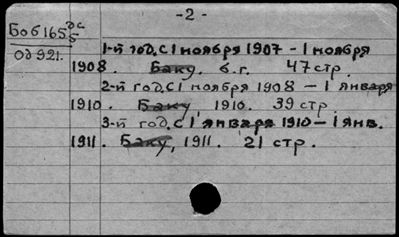 -2-
Боб165 дс
5
Од 921.
1-й год. с 1 ноября 1907 - 1 ноября
1908. Баку. б.г. 47 стр.
2-й год. с 1 ноября 1908 - 1 января
1910. Баку, 1910. 39 стр.
3-й год. с 1 января 1910 - 1 янв.
1911. Баку, 1911. 21 стр.